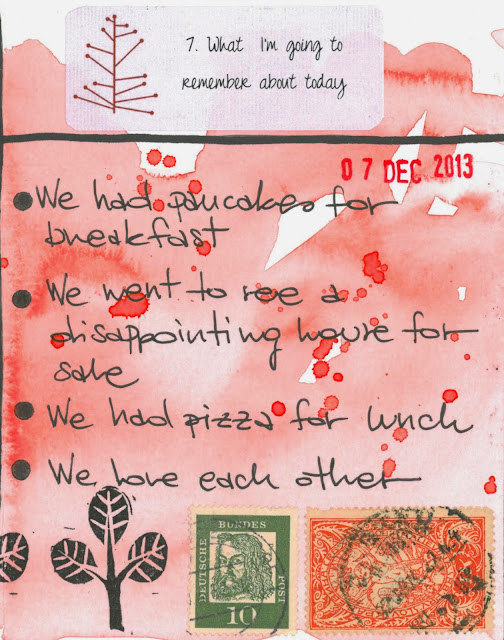 7. What I'm going to
remember about today
07 DEC 2013
We had pancakes for
breakfast
We went to see a
disappointing house for
sale
We had pizza for lunch
We have each other
BUNDES
DEUTSCHE
POST
10